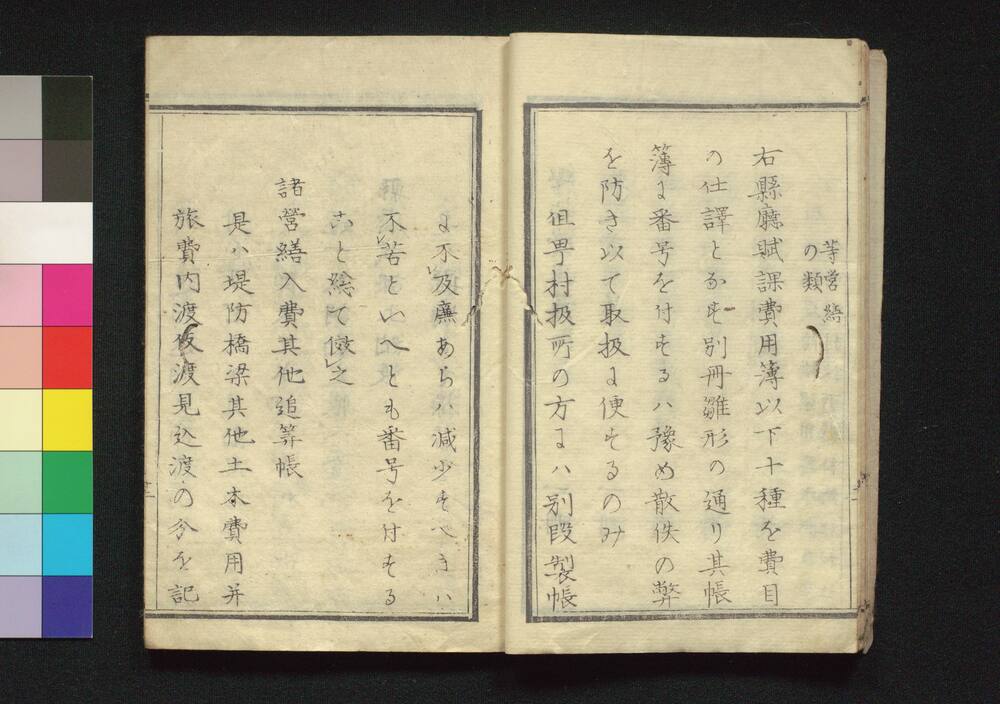 等営繕
の類
右縣廳賦課費用簿以下十種を費目
の仕譯となす別冊雛形の通り其帳
簿に番号を付するハ豫め散佚の弊
を防き以て取扱に便するのみ
但甼村扱所の方にハ別段製帳
に不及廉あらハ减少すへきハ
不苦といへとも番号を付する
こと総て傚之
諸營繕入費其他追筭帳
是ハ堤防橋梁其他土木費用并
旅費内渡仮渡見込渡の分を記